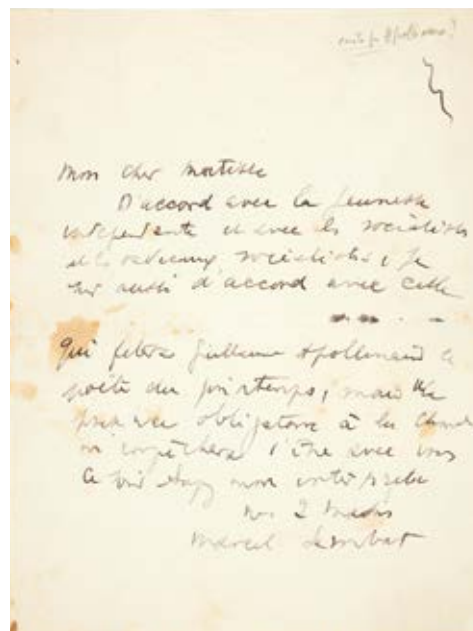 Apollinaire ?
Mon cher Matisse
D'accord avec la jeunesse
indépendante et avec les socialistes
et les radicaux socialistes, je
suis aussi d'accord avec celle
qui fêtera Guillaume Apollinaire le
poète du printemps, mais une
présence obligatoire à la Chambre
m'empêchera d'être avec vous
ce soir
nos 2 mains
Marcel Sembat